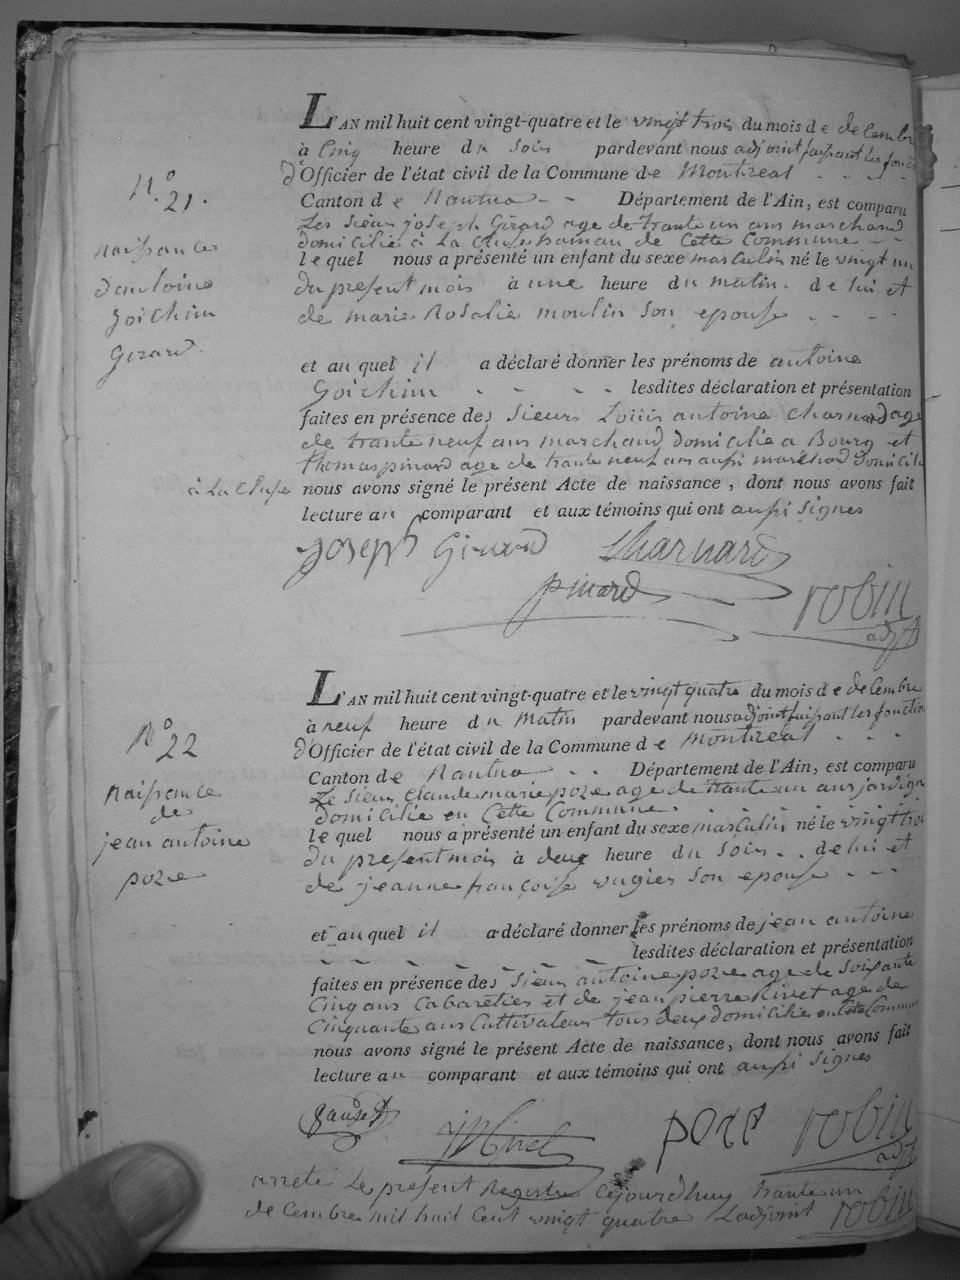 L'AN mil huit cent vingt-quatre et le vingt trois du mois de decembre
à Cinq heure du soir pardevant nous adjoint faisant les fonct
d'Officier de l'état civil de la Commune de Montreal
N.° 21.
Canton de Nantua Département de l'Ain, est comparu
Les sieur joseph Girard age de trante un ans marchand
domicilié a La Cluse hamau de Cette Commune
naissance
d'antoine
Goichim
Girard
le quel nous a présenté un enfant du sexe masculin né le vingt un
du present mois à une heure du matin. de lui et
de marie Rosalie moulin son epouse
et au quel il a déclaré donner les prénoms de antoine
Goichim lesdites déclaration et présentation
faites en présence des sieurs Louis antoine Charnard age
de trante neuf ans marchand domicilié a Bourg et
thomas pinard age de trante neuf ans aussi marchand domicilié
à La Cluse nous avons signé le présent Acte de naissance, dont nous avons fait
lecture au comparant et aux témoins qui ont aussi signes
Joseph Girard Charnard
pinard robin
adjt
L'AN mil huit cent vingt-quatre et le vingt quatre du mois de decembre
à neuf heure du Matin pardevant nous adjoint faisant les fonction
d'Officier de l'état civil de la Commune de Montreal
N° 22
Canton de Nantua Département de l'Ain, est comparu
Le sieur Claude marie poze age de trante un ans
domicilié en Cette Commune
Naissance
de
jean antoine
poze
le quel nous a présenté un enfant du sexe masculin né le vingt troi
du present mois à deux heure du soir. de lui et
de jeanne françoise son epouse
et au quel il a déclaré donner les prénoms de jean antoine
lesdites déclaration et présentation
faites en présence des sieur antoine poze age de soixante
Cinq ans Cabaretier et de jean pierre Rivet age de
Cinquante ans Cultivateur tous deux domicilie en Cette Commun
nous avons signé le présent Acte de naissance, dont nous avons fait
lecture au comparant et aux témoins qui ont aussi signes
poze robin
adjt
arreté Le present Registre Cejourdhuy trante un
decembre mil huit Cent vingt quatre Ladjoint robin